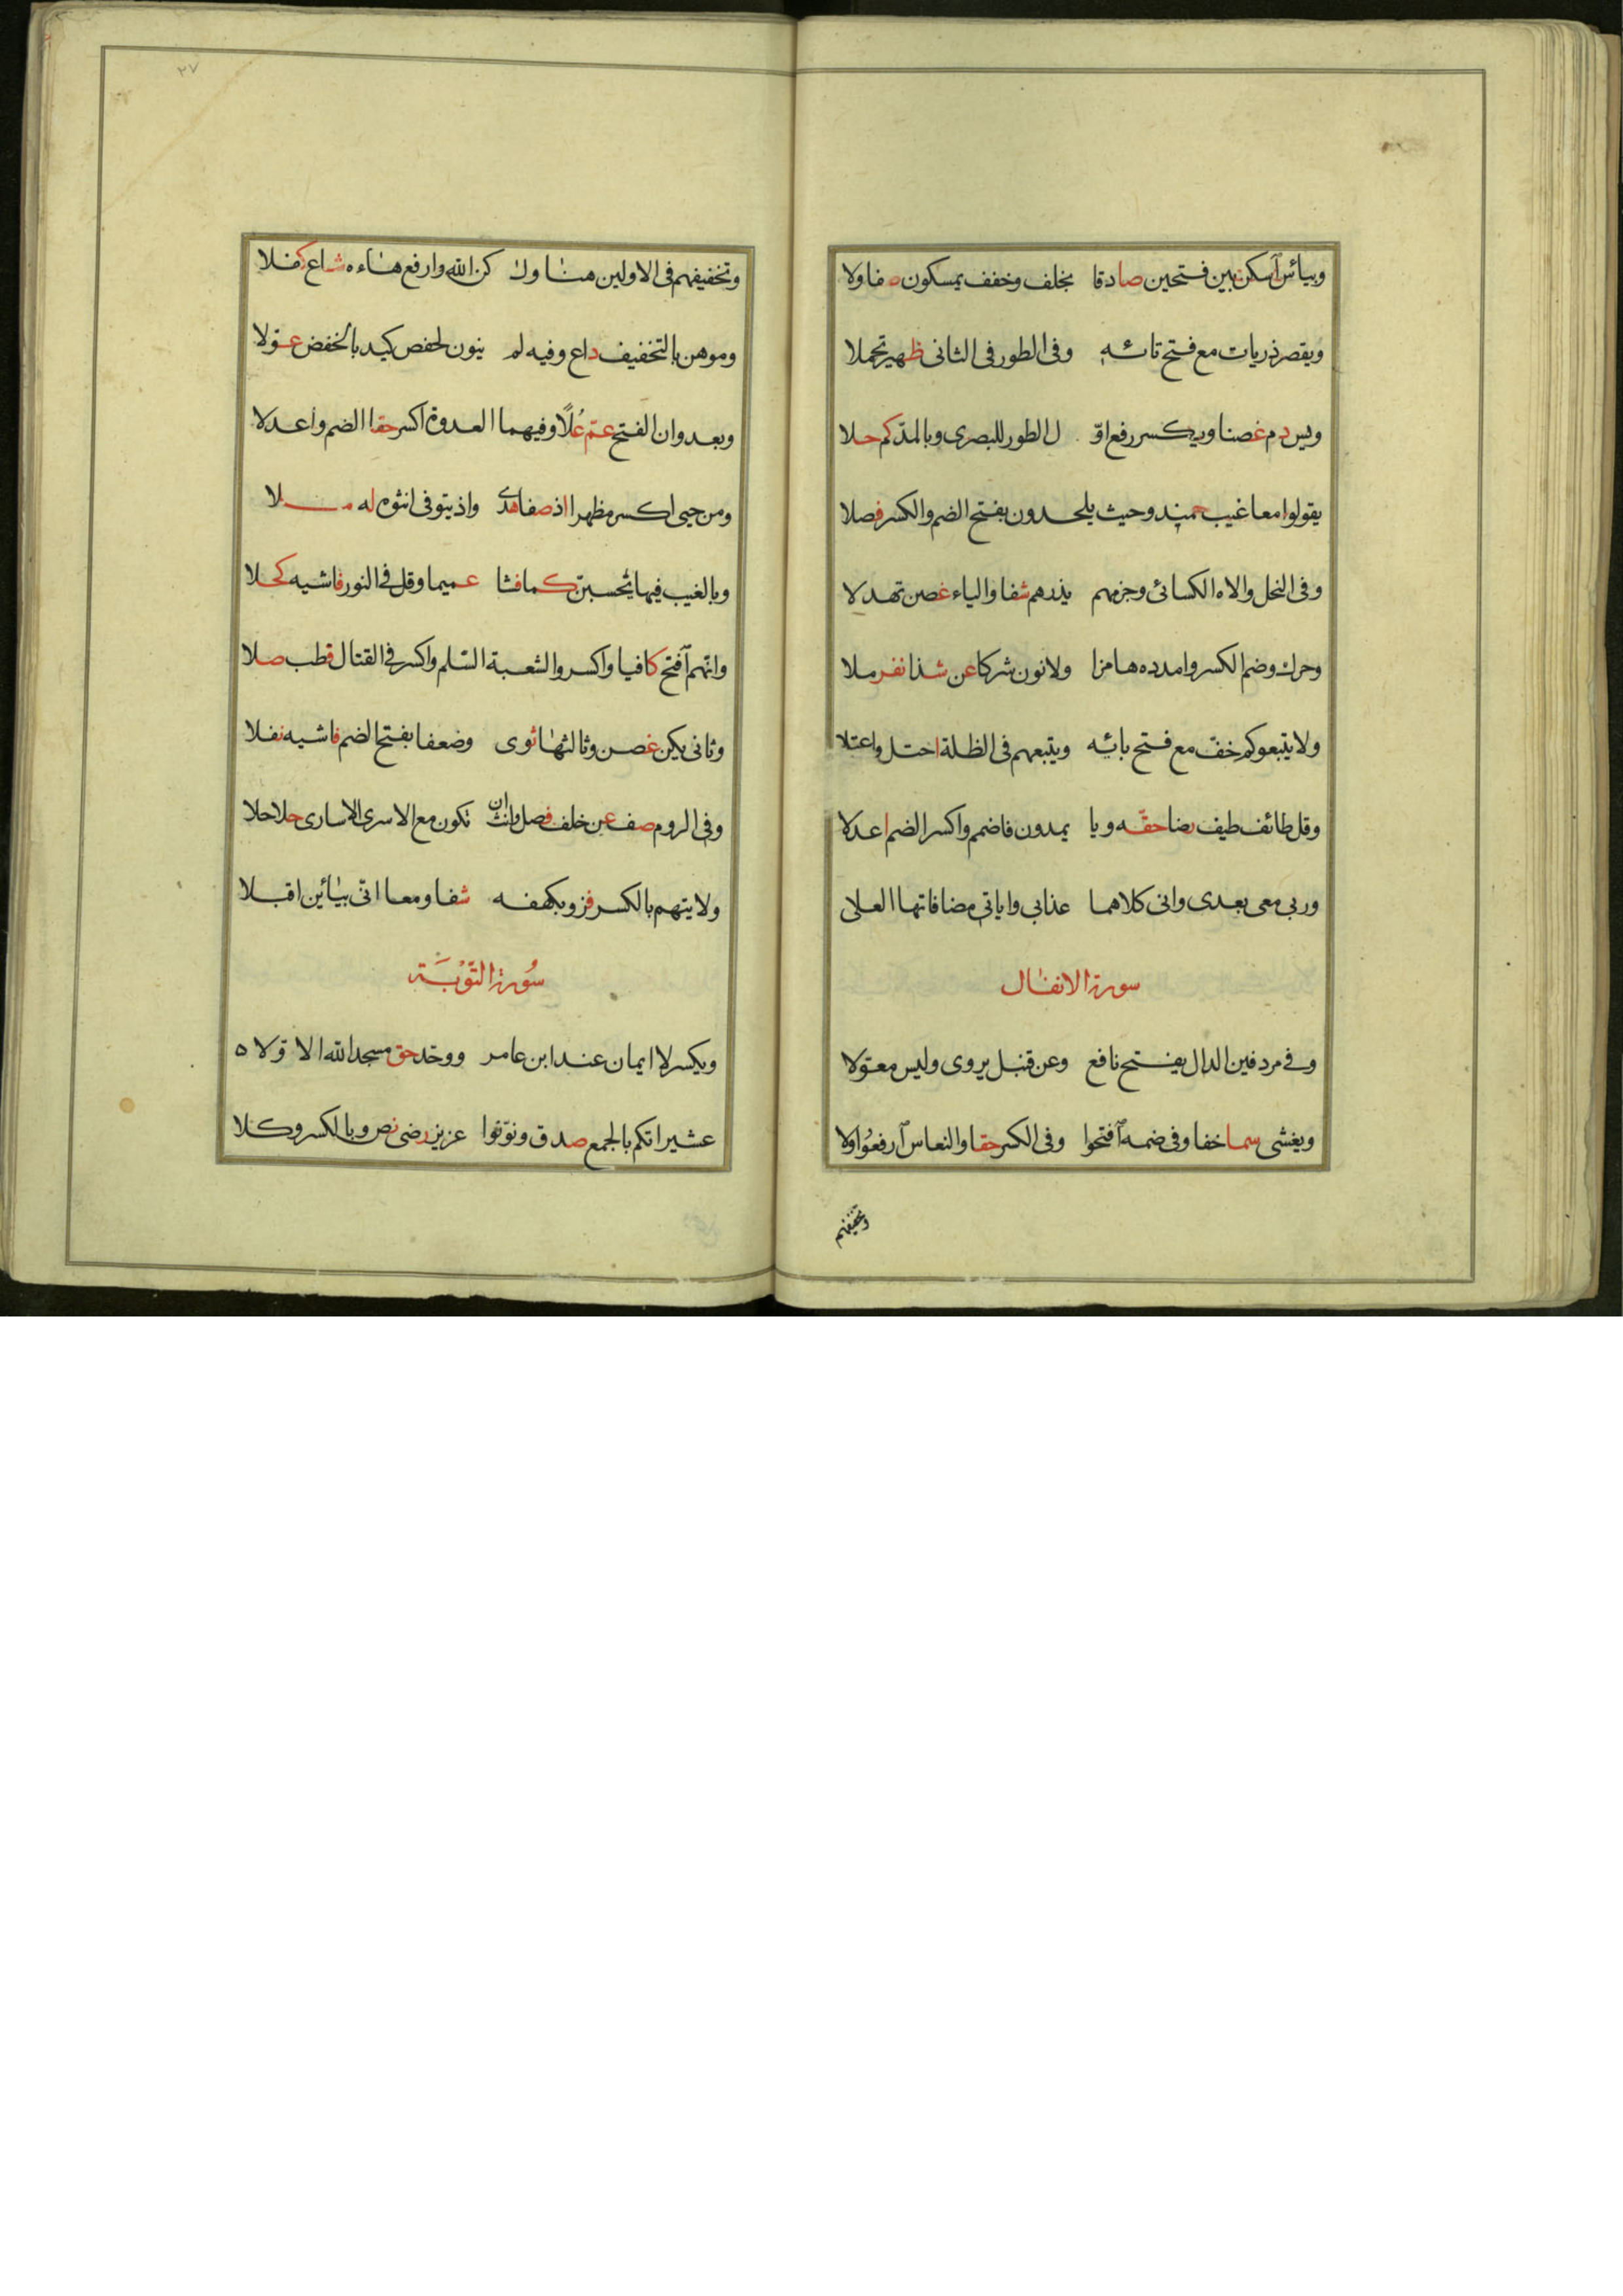 وبيأس آسكن بين فتحين صادقا بخلف وخفف يمسكون صفا ولا
ويقصر ذريات مع فتح تائه وفى الطور فى الثانى ظهير تحملا
ويس دم غصنا ويكسر رفع او ل الطور للبصرى وبالمد كم حلا
يقولوا معا غيب حميد وحيث يلحدون بفتح الضم والكسر فصلا
وفى النحل والاه الكسائى وجزمهم يذرهم شفا والياء غصن تهدلا
وحرك وضم الكسر وامدده هامزا ولا نون شركا عن شذا نفر ملا
ولا يتبعوكم خف مع فتح بائه ويتبعهم فى الظلة احتل واعتلا
وقل طائف طيف رضا حقه ويا يمدون فاضمم واكسر الضم اعدلا
وربى معى بعدى وانى كلاهما عذابى واياتى مضافاتها العلى
سورة الانفال
وفى مردفين الدال يفتح نافع وعن قنبل يروى وليس معولا
ويغشى سما خفا وفى ضمه آفتحوا وفى الكسر حقا والنعاس آرفعوا ولا
وتخفيفهم
٢٧
وتخفيفهم فى الاولين هنا ولكن الله وارفع هاءه شاع كفلا
وموهن بالتخفيف داع وفيه لم ينون لحفص كيد بالخفض عولا
وبعد وان الفتح عم علًا وفيهما العدوة اكسر حقا الضم واعدلا
ومن حيى اكسر مظهرا اذ صفا هدى واذ يتوفى انثوه له ملا
وبالغيب فيها يحسبن كما فشا عميما وقل فى النور فاشيه كحلا
وانهم آفتح كافيا واكسروا لشعبة السلم واكسر فى القتال فطب صلا
وثانى يكن غصن وثالثها ثوى وضعفا بفتح الضم فاشيه نفلا
وفى الروم صف عن خلف فصل وانث ان تكون مع الاسرى الاسارى حلا حلا
ولايتهم بالكسر فز وبكهفه شفا ومعا انى بيائين اقبلا
سُورة التَّوْبَة
ويكسر لا ايمان عند ابن عامر ووحد حق مسجد الله الاولا ه
عشيراتكم بالجمع صدق ونونوا عزيز رضى نص وبالكسر وكلا